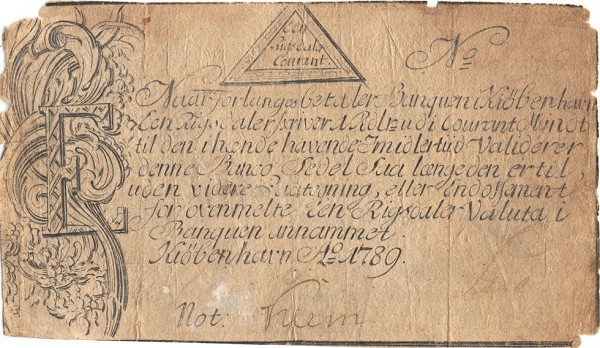 Een
Rigsdaler
Courant
No
E
Naar forlanges betaler Banquen i Kiöbenhavn
Een Rigsdaler
i Courant Myndt
til den i hænde havende Emidlertid Validerer
denne Banco Sedel Saa længe den er til,
uden videre eller Endossement
for ovenmelte Een Rigsdaler Valuta i
Banquen annammet.
Kiöbenhavn Ao. 1789.
Not: